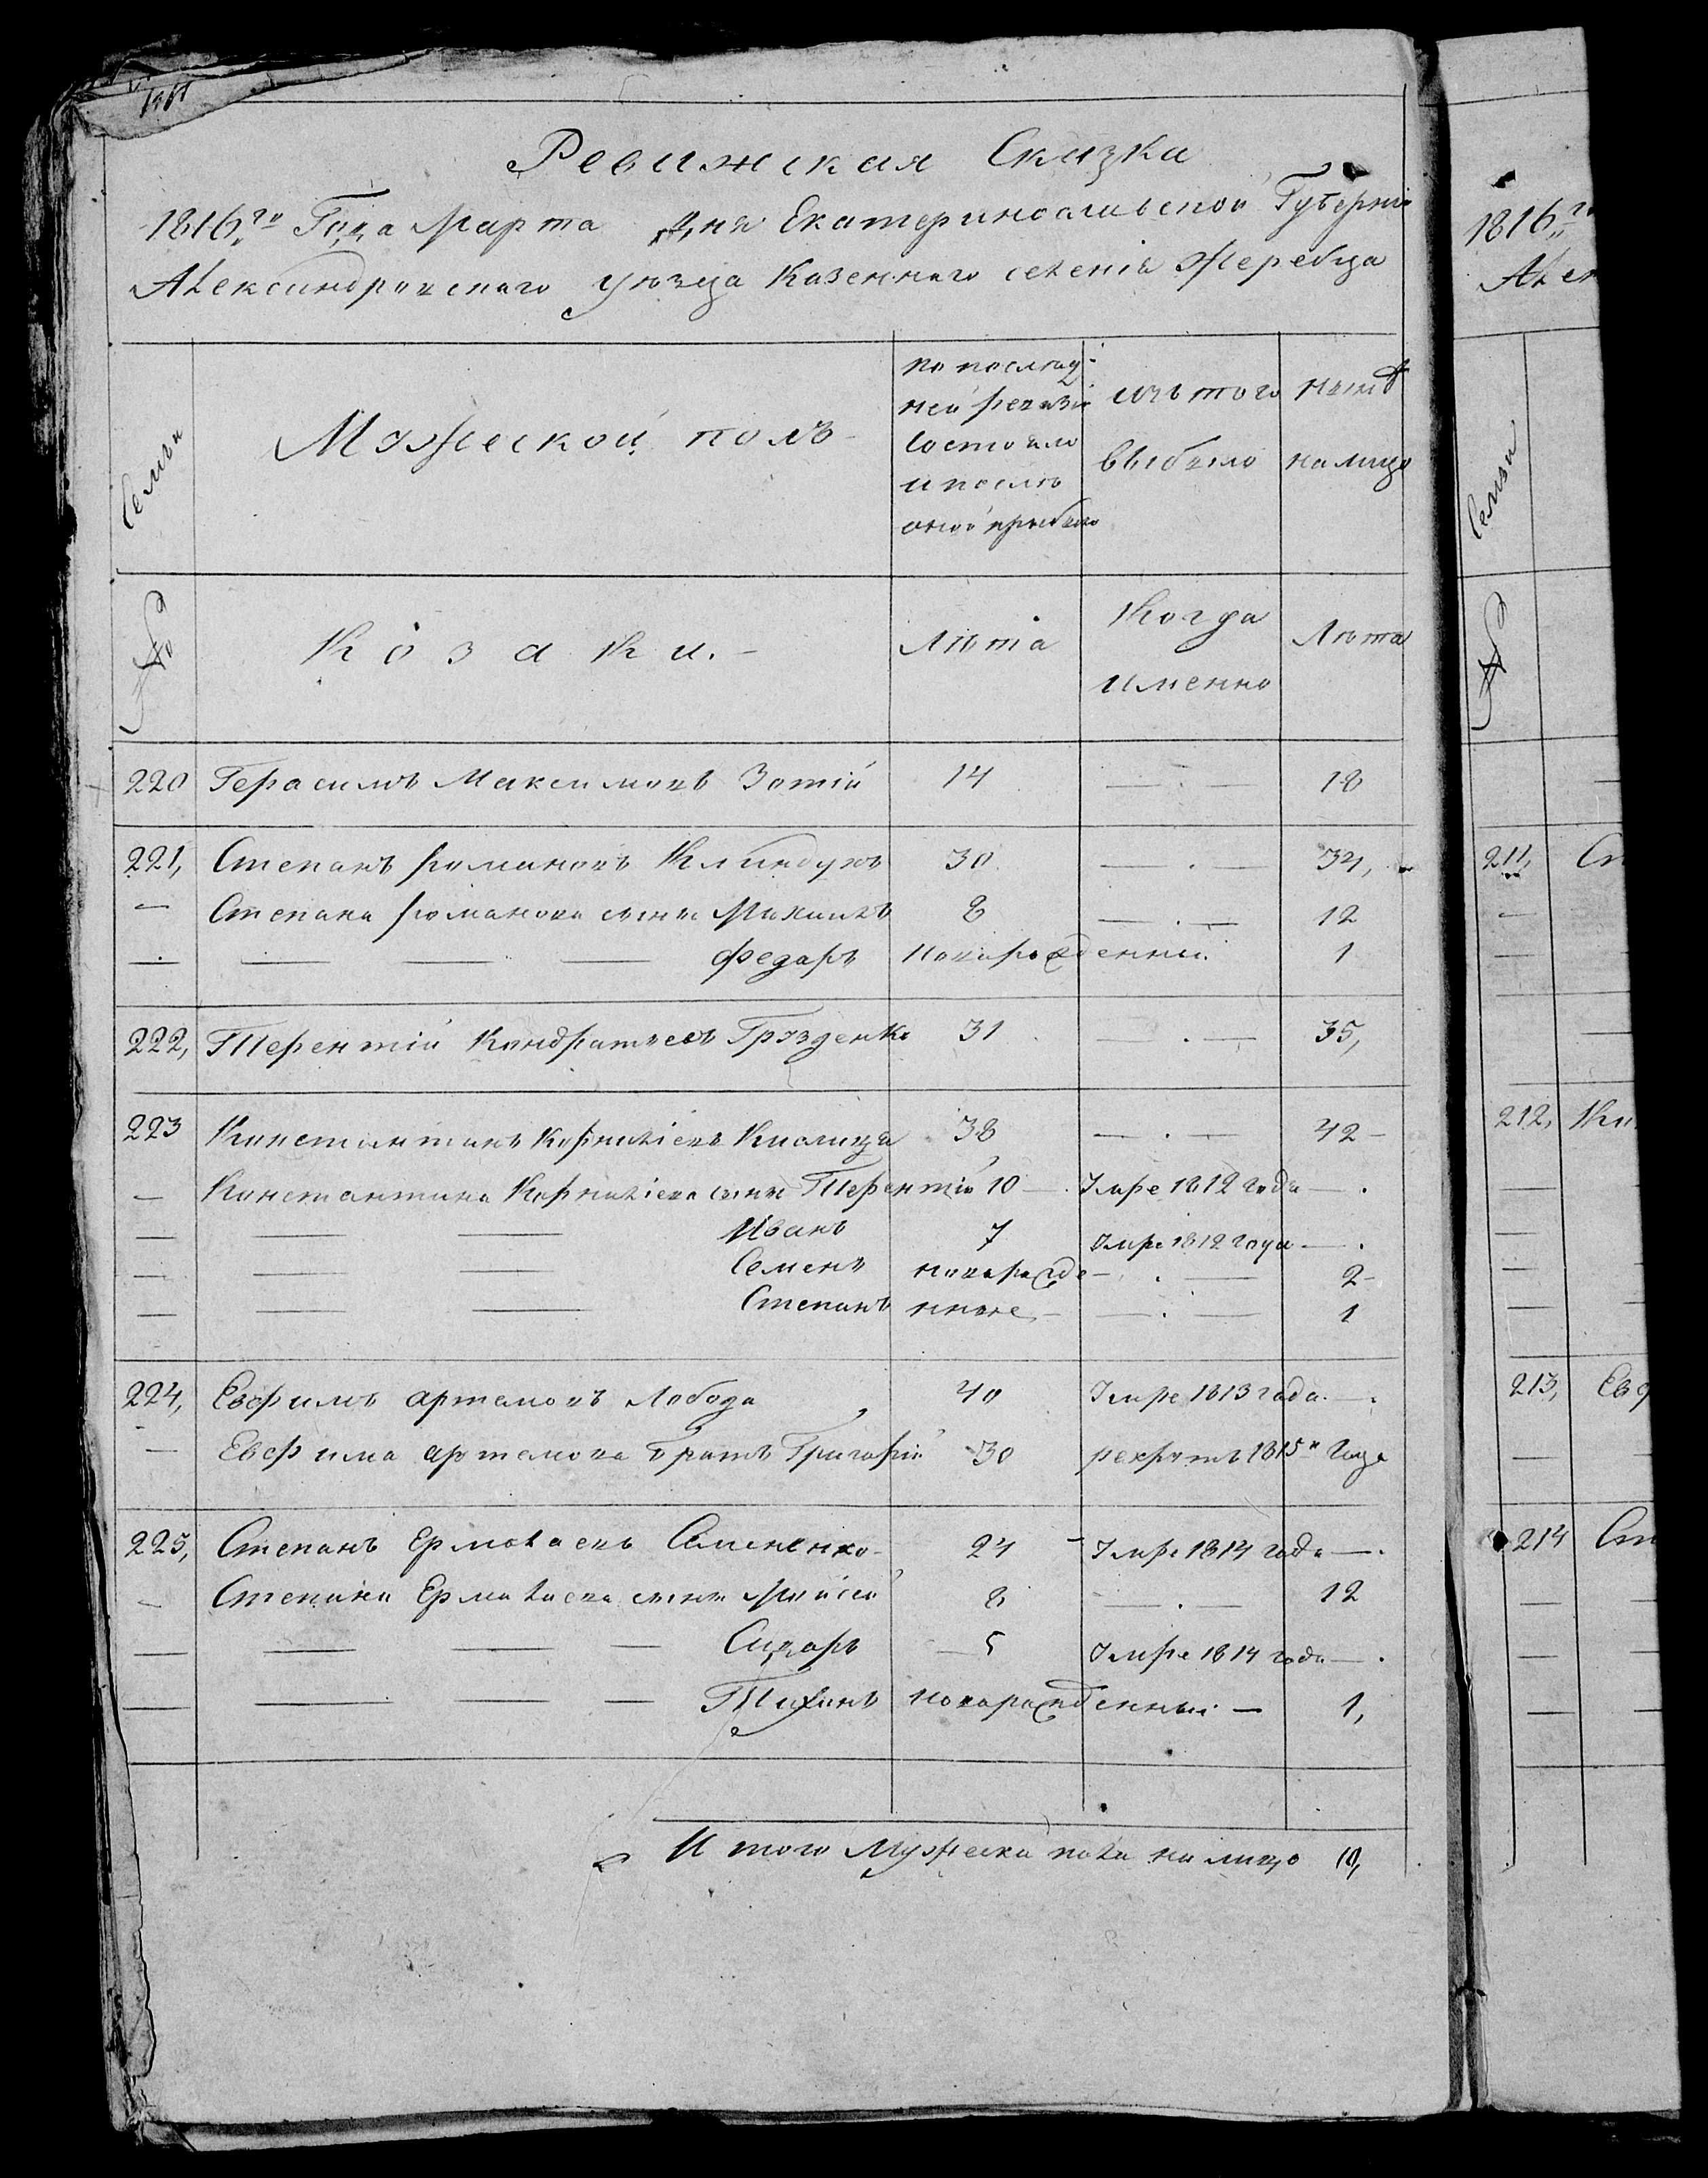 Ревижская Сказка
1816го Года Марта дня Екатеринославской Губерніи
Александровского уезда Казенного селенія Жеребца
Семьи
Мужеской полъ
по послед-
ней ревизіи
состояло
и после
оной прибыло
изъ того
выбыло
ныне
на лицо
№
Козаки.
Лета
Когда
именно
Лета
220 Герасимъ Максимовъ Зотій 14 18
221, Степанъ Романовъ Клиндухъ 30 34,
Степана Романова сынъ Михаилъ 8 12
Федаръ новорожденный 1
222, Терентій Кондратьевъ Грузденко 31 35,
223 Константинъ Корниліевъ 38 42
Константина Корниліева сынъ Терентій 10 Умре 1812 года
Иванъ 7 Умре 1812 года
Семенъ новорожде- 2
Степанъ нные 1
224, Евфимъ Артемовъ Лобода 40 Умре 1813 года
Евфима Артемова братъ Григорій 30 рекрутъ 1815 года
225, Степанъ Ермолаевъ Семененко 24 Умре 1814 года
Степана Ермолаева сынъ Мойсей 8 12
Сидаръ 5 Умре 1814 года
Тиханъ новорожденный 1,
Итого Мужеска пола на лицо 10,
1816го
Алек
Семьи
№
211, Ст
212, Ко
213, Евф
214 Ст